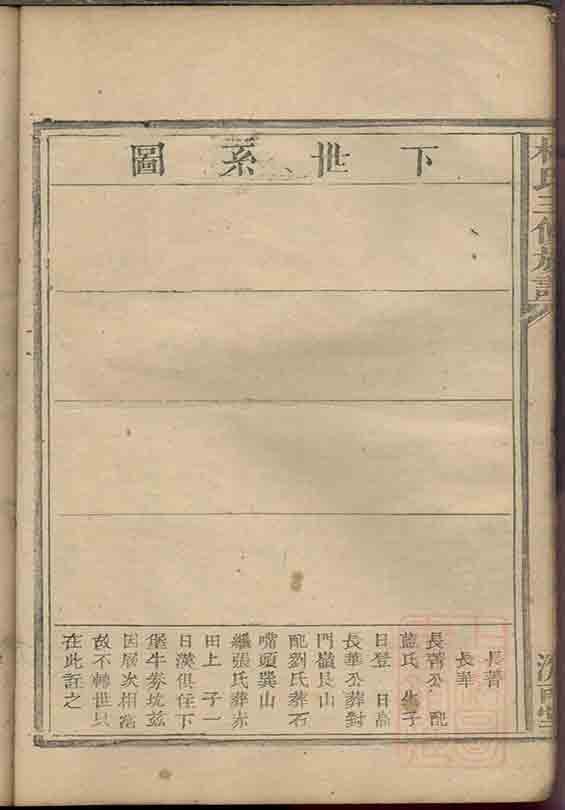 下世系圖
長菁
長華
長菁公 配
藍氏 生子
日登 日高
長華公葬對
門嶺艮山
配劉氏葬石
嘴頭巽山
繼張氏葬赤
田上 子一
日漢俱住下
堡牛麥坑茲
因層次相高
故不轉世只
在此註之
氏三修族譜